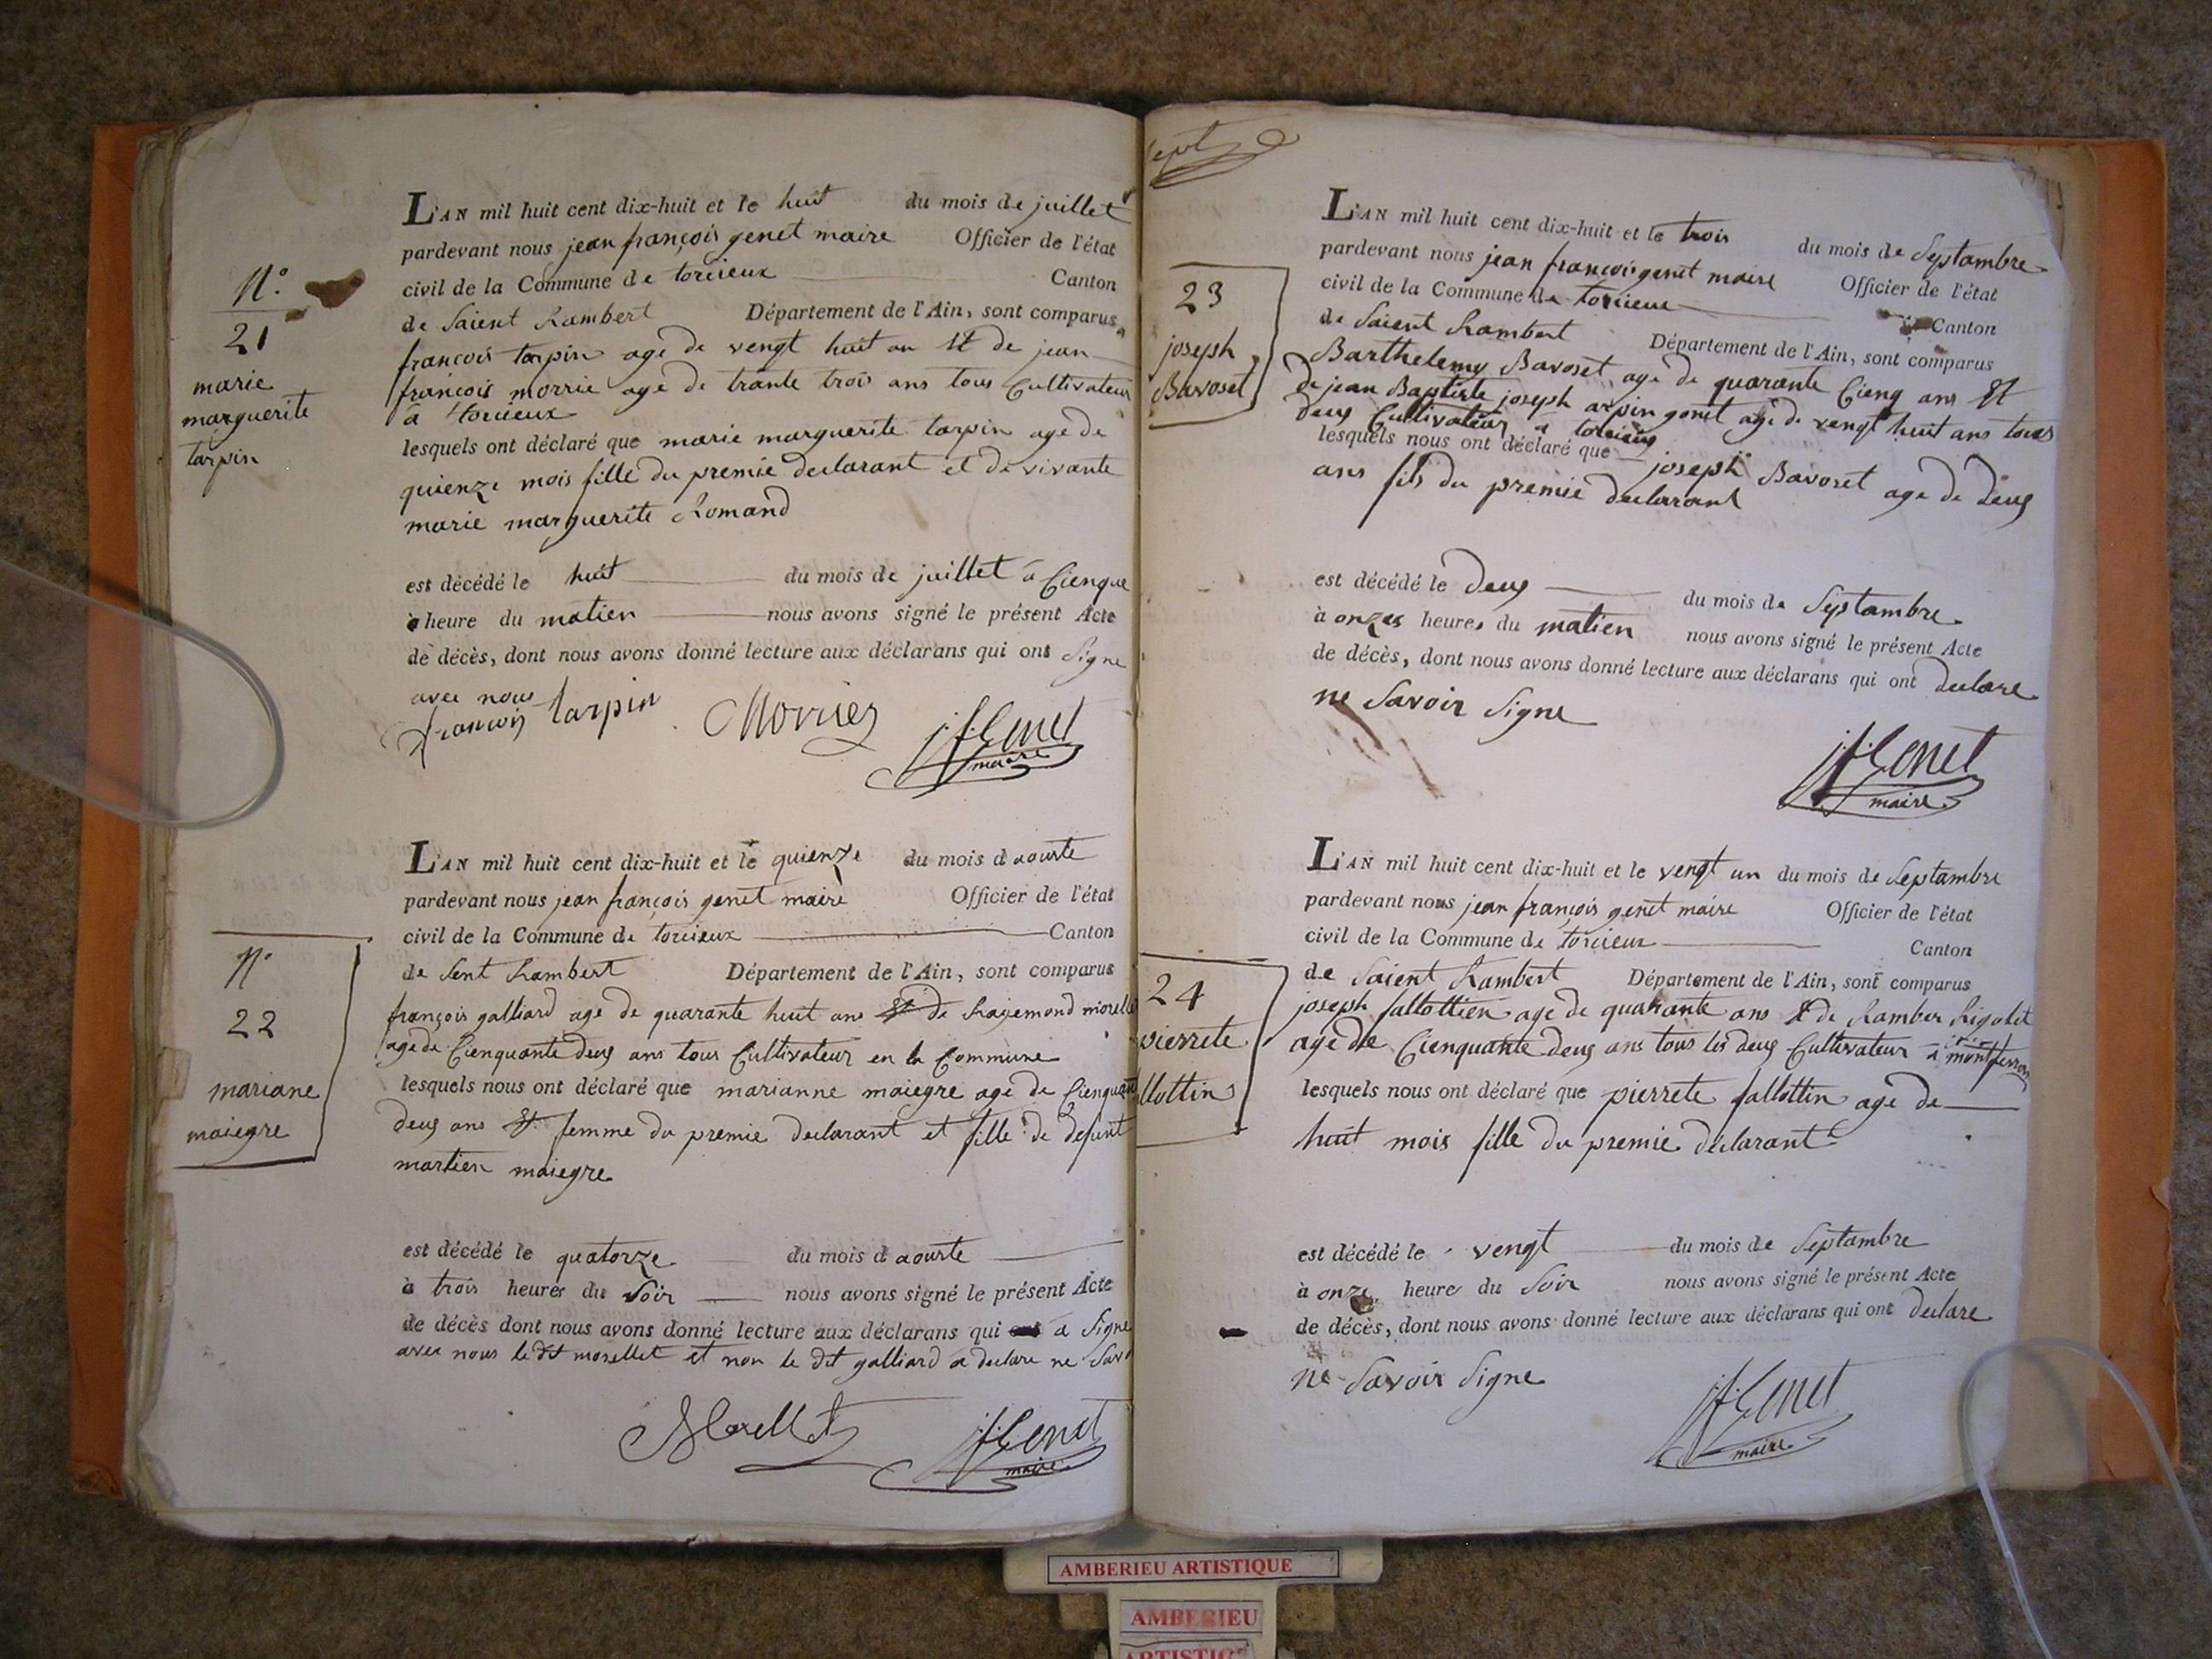 L'AN mil huit cent dix-huit et le huit du mois de juillet
pardevant nous jean françois genet maire Officier de l'état
civil de la Commune de torcieux Canton
de Saient Rambert Département de l'Ain, sont comparus
françois tarpin age de vengt huit an Et de jean
françois morrie age de trante trois ans tous Cultivateur
à torcieux
lesquels ont déclaré que marie marguerite tarpin age de
quienze mois fille du premie declarant et de vivante
marie marguerite Romand
est décédé le huit du mois de juillet à Cienque
heure du matien nous avons signé le présent Acte
de décès, dont nous avons donné lecture aux déclarans qui ont Signe
avec nous
françois tarpin Morriez jfGenet
maire
N.o
21
marie
marguerite
tarpin
L'AN mil huit cent dix-huit et le quienze du mois d aouste
pardevant nous jean françois genet maire Officier de l'état
civil de la Commune de torcieux Canton
de Sent Rambert Département de l'Ain, sont comparus
françois galliard age de quarante huit ans Et de Rayemond morelle
age de Cienquante deus ans tous Cultivateur en la Commune
lesquels nous ont déclaré que marianne maiegre age de Cienquant
deus ans Et femme du premie declarant et fille de defunt
martien maiegre
est décédé le quatorze du mois d aouste
à trois heures du Soir nous avons signé le présent Acte
de décès dont nous avons donné lecture aux déclarans qui a Signe
avec nous le dit morellet et non le dit galliard a declare ne Savo
Morellet jfGenet
maire
N.o
22
mariane
maiegre
Sept
L'AN mil huit cent dix-huit et le trois du mois de Septambre
pardevant nous jean françois genet maire Officier de l'état
civil de la Commune de torcieux Canton
de Saient Rambert Département de l'Ain, sont comparus
Barthelemy Bavoset age de quarante Cienq ans Et
de jean Baptiste joseph arpin gonet age de vengt huit ans tous
deus Cultivateur a torcieux
lesquels nous ont déclaré que joseph Bavoset age de deus
ans fils du premie declarant
est décédé le deus du mois de Septambre
à onzes heures du matien nous avons signé le présent Acte
de décès, dont nous avons donné lecture aux déclarans qui ont declare
ne Savoir Signe
jfGenet
maire
23
joseph
Bavoset
L'AN mil huit cent dix-huit et le vengt un du mois de Septambre
pardevant nous jean françois genet maire Officier de l'état
civil de la Commune de torcieux Canton
de Saient Rambert Département de l'Ain, sont comparus
joseph fallottien age de quarante ans Et de Ramber Rigolet
age de Cienquante deus ans tous les deus Cultivateur à montferran
lesquels nous ont déclaré que pierrete fallottin age de
huit mois fille du premie declarant
est décédé le vengt du mois de Septambre
à onze heure du Soir nous avons signé le présent Acte
de décès, dont nous avons donné lecture aux déclarans qui ont declare
ne Savoir Signe
jfGenet
maire
24
pierrete
llottin
AMBERIEU ARTISTIQUE
AMBERIEU
ARTISTIQ